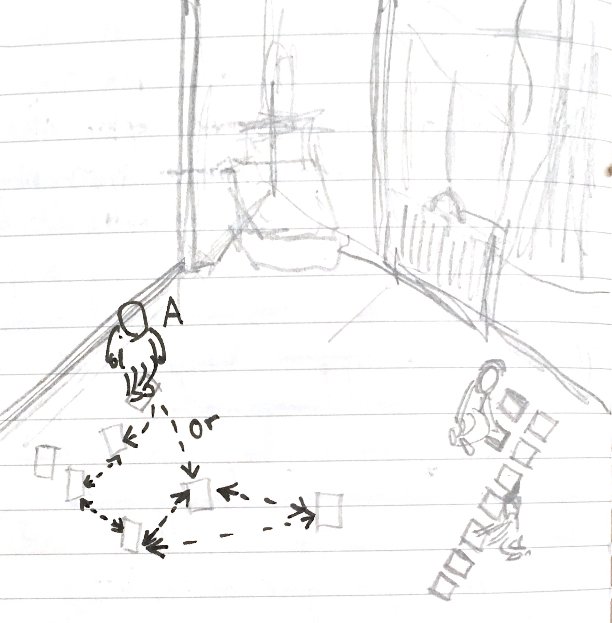 A
or